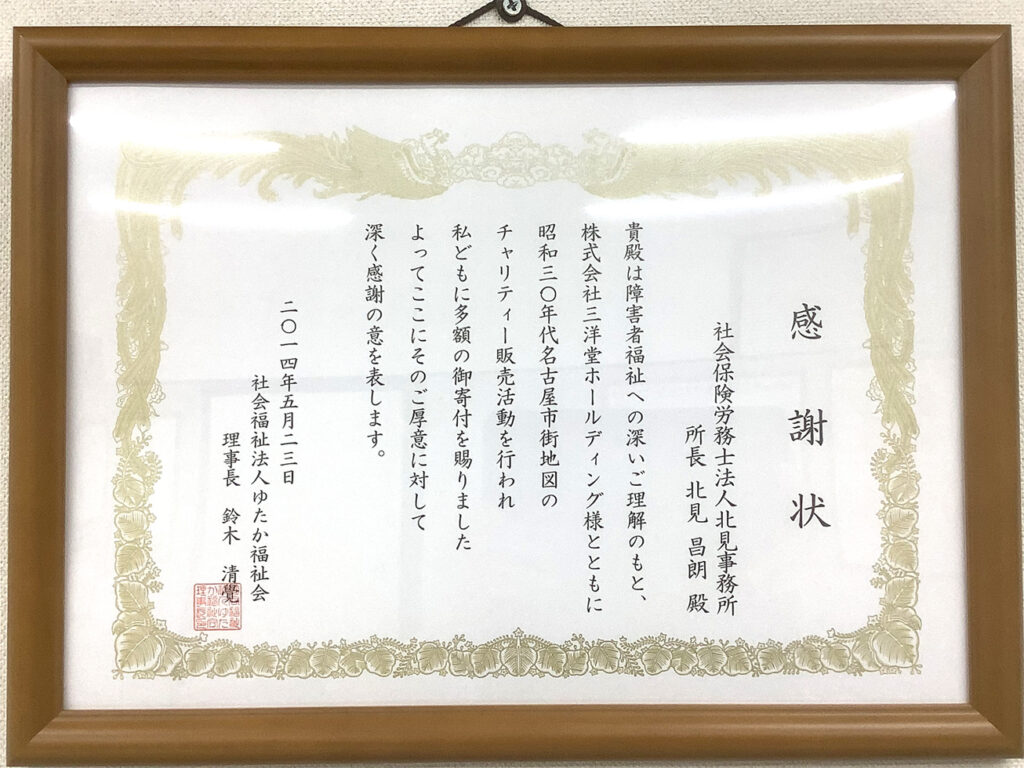 感謝状
社会保険労務士法人北見事務所
所長 北見 昌朗 殿
貴殿は障害者福祉への深いご理解のもと、
株式会社三洋堂ホールディング様とともに
昭和三〇年代名古屋市街地図の
チャリティー販売活動を行われ
私どもに多額の御寄付を賜りました
よってここにそのご厚意に対して
深く感謝の意を表します。
二〇一四年五月二三日
社会福祉法人ゆたか福祉会
理事長 鈴木 清覺